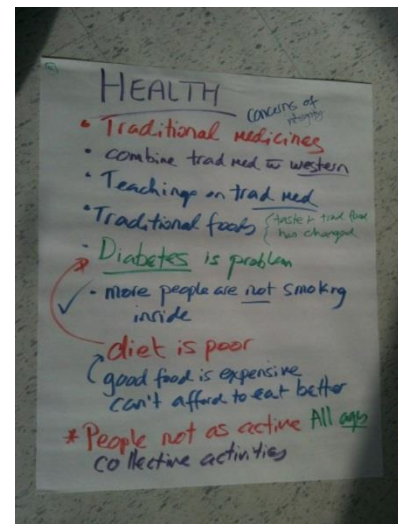 HEALTH
concerns of
• Traditional medicines
• combine trad med w western
• Teachings on trad med
• Traditional foods (taste & trad food
has changed
• Diabetes is problem
✓ • more people are not smoking
inside
diet is poor
good food is expensive
can't afford to eat better
* People not as active All ages
collective activities